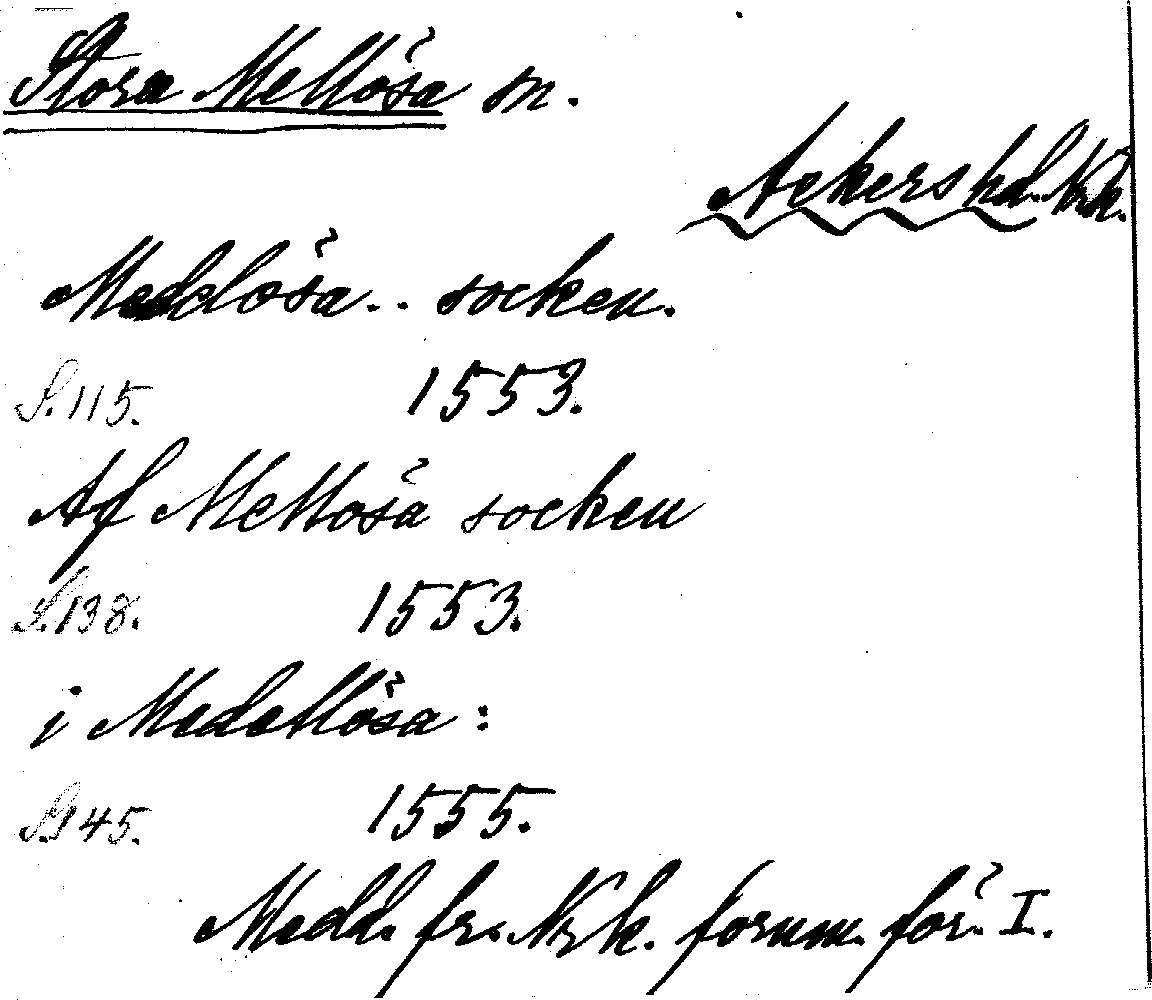 Stora Mellösa sn.
Askers hd. Nrk.
Meddlösa.. socken.
S. 115. 1553.
Af Mellösa socken
S. 138. 1553.
i Medellösa:
S. 145. 1555.
Medd. fr. Nrk. fornm. för. I.